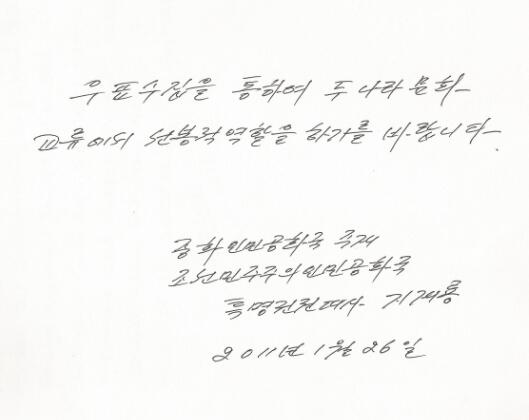 우표수집을 통하여 두 나라 문화
교류에서 선봉적역할을 하기를 바랍니다.
중화인민공화국 주재
조선민주주의인민공화국
특명전권대사 지재룡
2011년 1월 26일